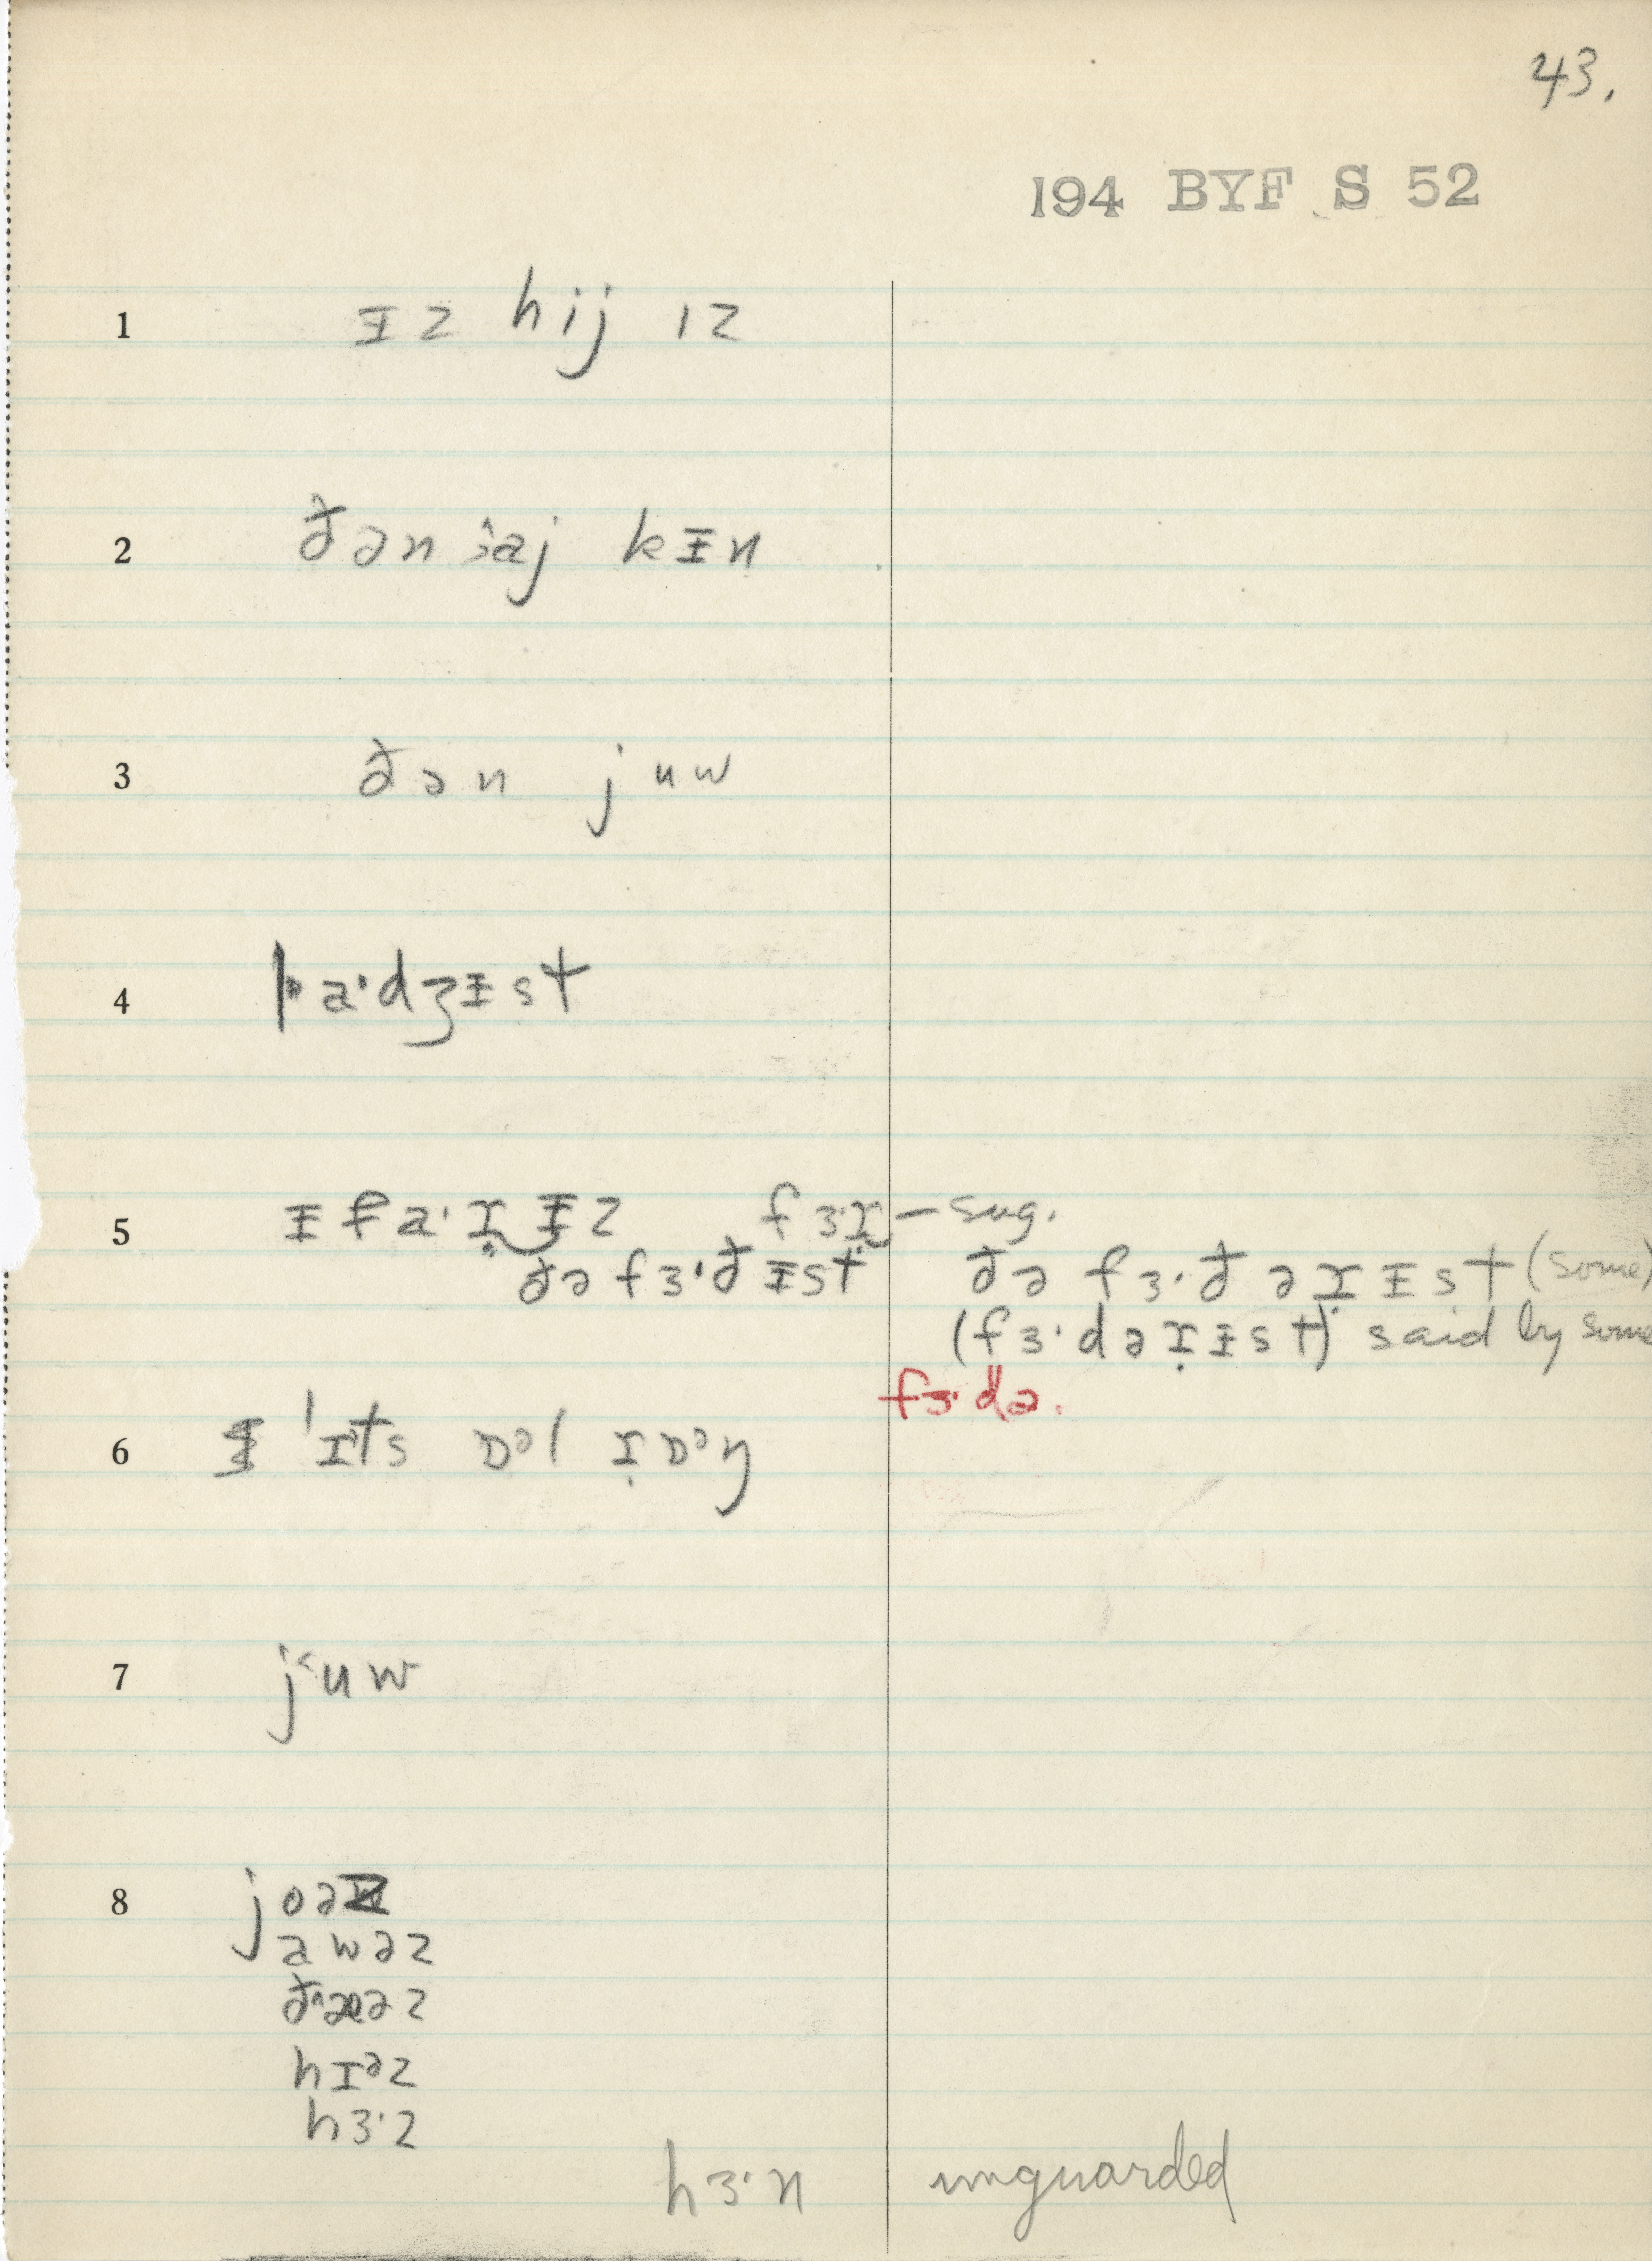 43.
194 BYF S 52
1 ᵻz hij ɪz
2 ðən aj kᵻn
3 ðən juw
4 a·dʒᵻst
5 ᵻf a·ɪ̣ ᵻz f3·ɪ̣ – sug.
ðə fɜ·ðᵻst ðə fɜ·ðəɪ̣ᵻst (some)
(fɜ·dəɪ̣ᵻst) said by some
fɜ·də.
6 'ɪts ɒᵊl ɪ̣ɒᵊŋ
7 j˂uw
8 joə
awəz
hɪᵊz
hɜ·z
hɜ·n unguarded